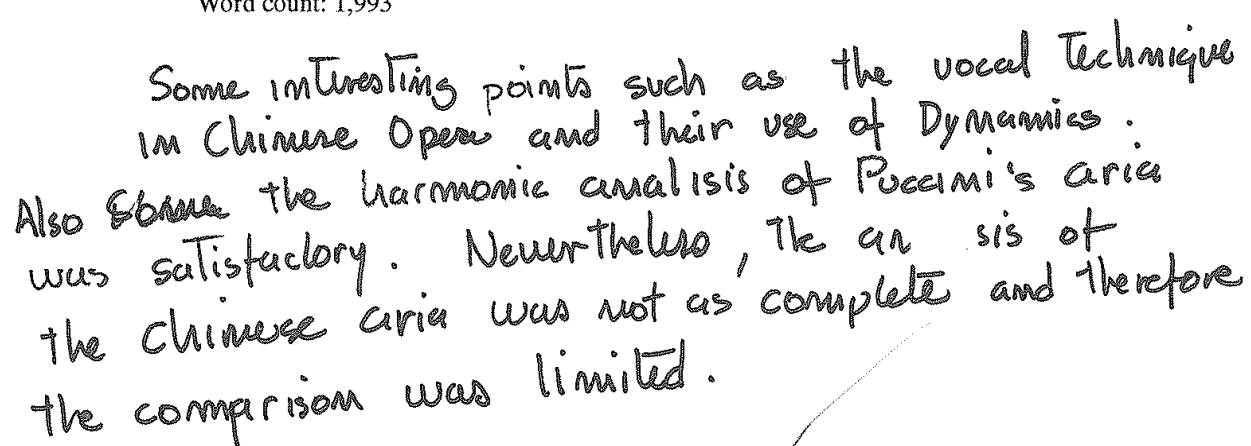 Word count: 1,993
Some interesting points such as the vocal technique
in Chinese Opera and their use of Dynamics.
Also the harmonic analisis of Puccini's aria
was satisfactory. Nevertheless, the an sis of
the chinese aria was not as complete and therefore
the comparison was limited.